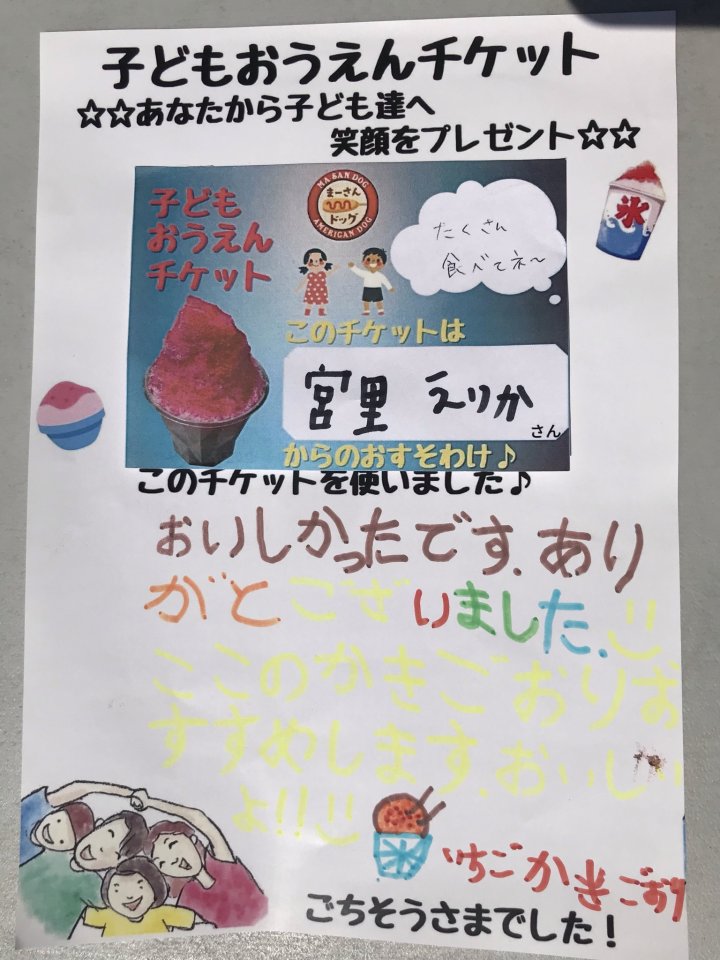 子どもおうえんチケット
☆☆あなたから子ども達へ
笑顔をプレゼント☆☆
子ども
おうえん
チケット
MA SAN DOG
まーさん
ドッグ
AMERICAN DOG
たくさん
食べてネ〜
氷
このチケットは
宮里 えりか
さん
からのおすそわけ♪
このチケットを使いました♪
おいしかったです.あり
がとございました.
ここのかきごおりお
すすめします.おいしい
よ!!
氷
いちごかきごおり
ごちそうさまでした!